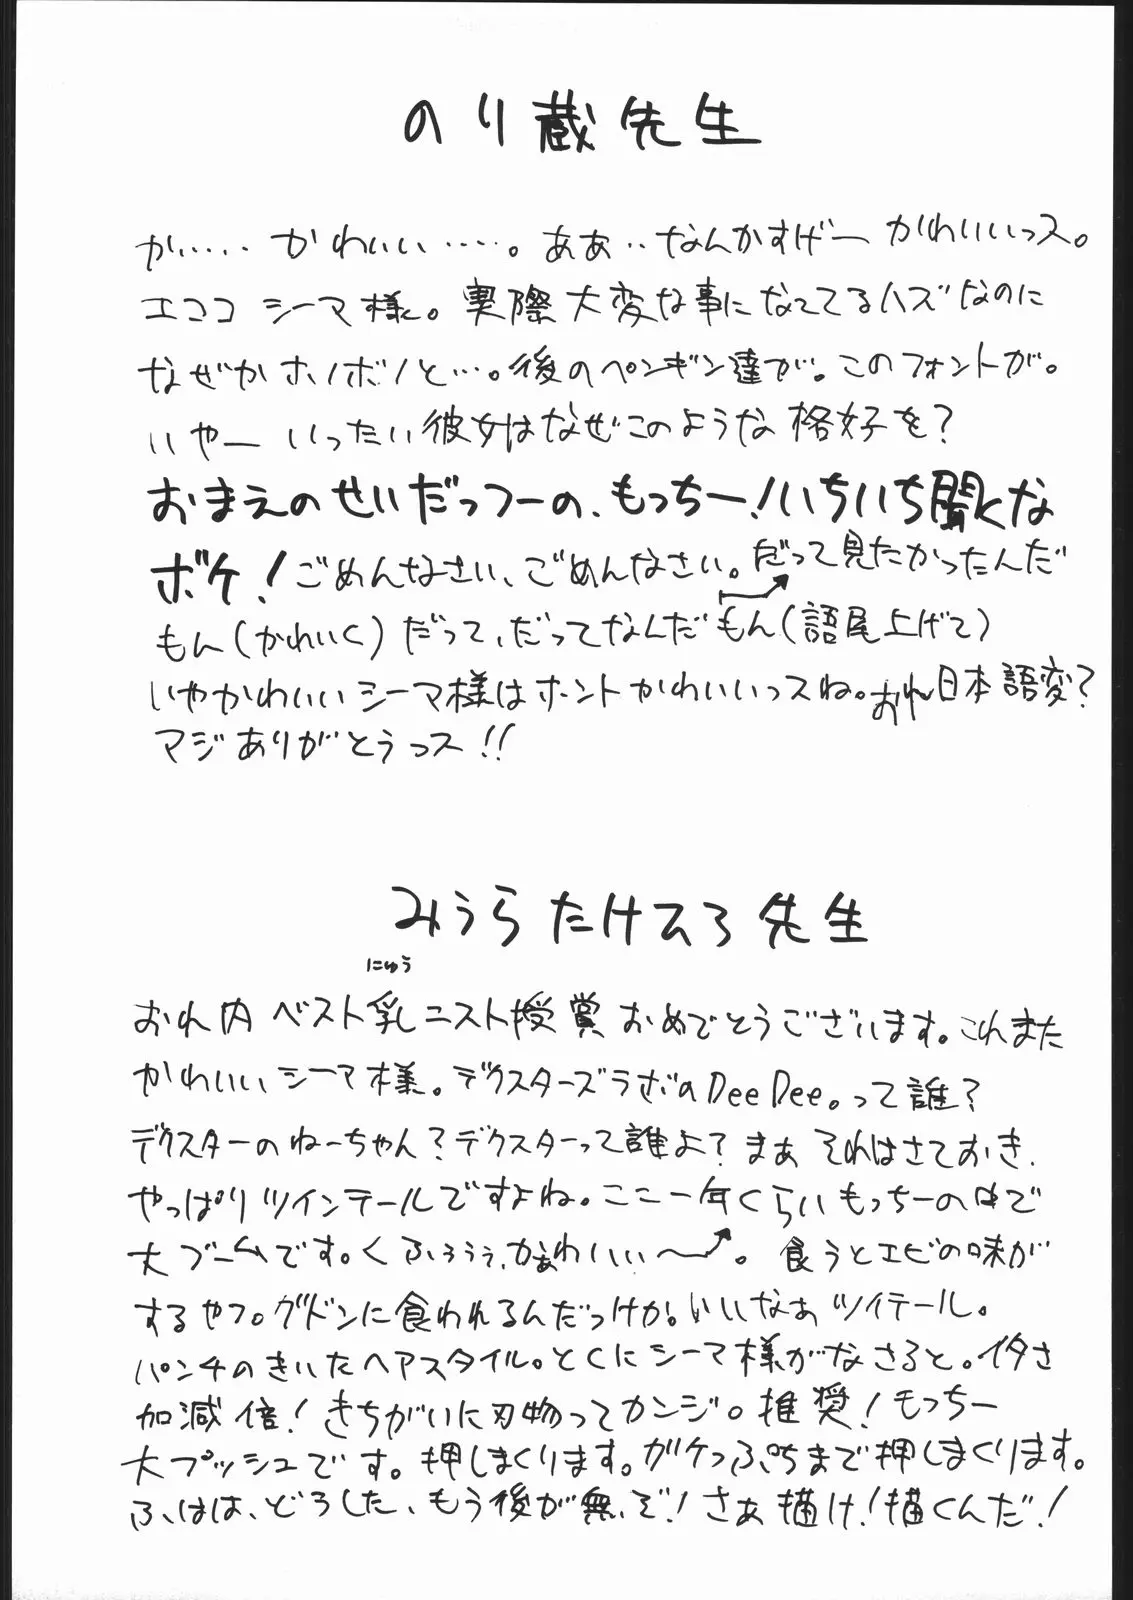 のり蔵先生
か‥‥‥ かわいい‥‥‥。ああ‥なんかすげー かわいいっス。
エココ シーマ様。実際大変な事になってるハズなのに
なぜかホノボノと…。後のペンギン達が。このフォントが。
いやー いったい彼女はなぜこのような格好を?
おまえのせいだっつーの、もっちー!いちいち聞くな
ボケ!ごめんなさい、ごめんなさい。だって見たかったんだ
もん(かわいく)だって、だってなんだもん(語尾上げて)
いやかわいいシーマ様はホントかわいいっスね。おれ日本語変?
マジありがとうっス!!
みうらたけひろ先生
にゅう
おれ内 ベスト乳ニスト授賞 おめでとうございます。これまた
かわいいシーマ様。デクスターズラボのDeeDee。って誰?
デクスターのねーちゃん?デクスターって誰よ?まぁ それはさておき、
やっぱりツインテールですよね。ここ一年くらいもっちーの中で
大ブームです。くふぅぅぅ、かぁわいい〜。 食うとエビの味が
するやフ。グドンに食われるんだっけか。いいなぁ ツイテール。
パンチのきいたヘアスタイル。とくにシーマ様がなさると。イタさ
加減倍!きちがいに刃物ってカンジ。推奨!もっちー
大プッシュです。押しまくります。ガケっぷちまで押しまくります。
ふははは、どうした、もう後が無いぞ!さぁ描け!描くんだ!